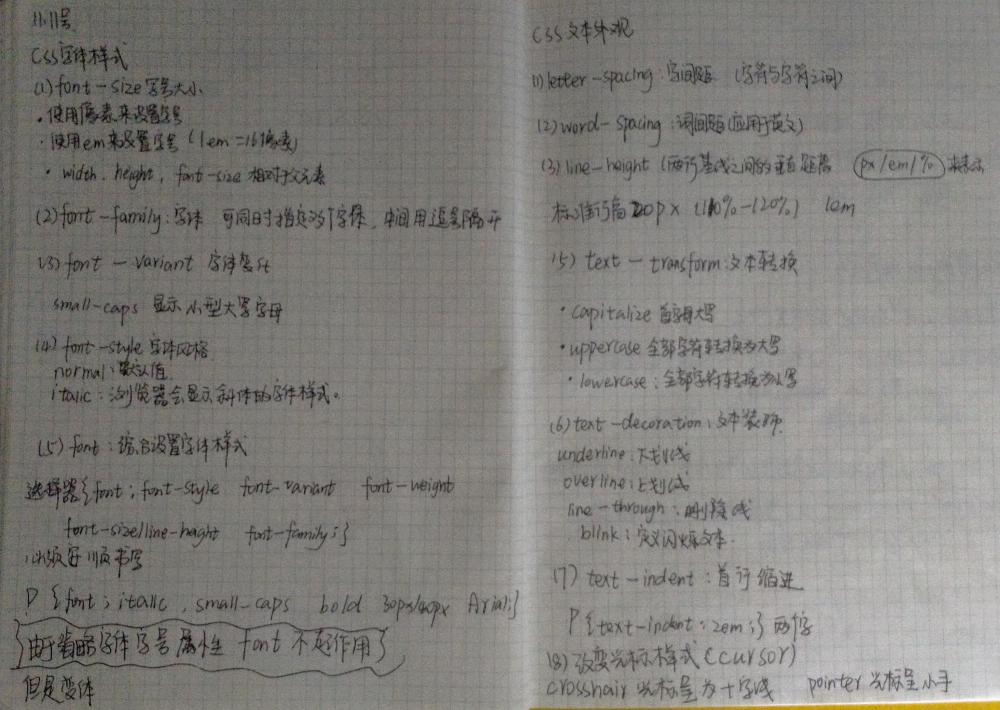 11.11号
CSS字体样式
(1) font-size 字号大小
· 使用像素来设置字号
· 使用em来设置字号 (1em=16像素)
· width, height, font-size 相对于父元素
(2) font-family: 字体 可同时指定多个字体, 中间用逗号隔开
(3) font-variant 字体变化
small-caps 显示小型大写字母
(4) font-style 字体风格
normal: 默认值
italic: 浏览器会显示斜体的字体样式。
(5) font: 综合设置字体样式
选择器{font: font-style font-variant font-weight
font-size/line-height font-family;}
必须按顺序书写
P {font; italic, small-caps bold 30px/40px Arial;}
{由于省略字体字号属性 font 不起作用}
但是变体
CSS文本外观
(1) letter-spacing: 字间距 (字符与字符之间)
(2) word-spacing: 词间距(应用于英文)
(3) line-height (两行基线之间的垂直距离 px/em/% 来表示
标准行高 20px (110%-120%) 1em
(5) text-transform: 文本转换
· capitalize 首字母大写
· uppercase 全部字符转换为大写
· lowercase: 全部字符转换为小写
(6) text-decoration: 文本装饰
underline: 下划线
overline: 上划线
line-through: 删除线
blink: 定义闪烁文本.
(7) text-indent: 首行缩进
P {text-indent: 2em;} 两个字
(8) 改变光标样式 (cursor)
crosshair 光标呈为十字线 pointer 光标呈小手